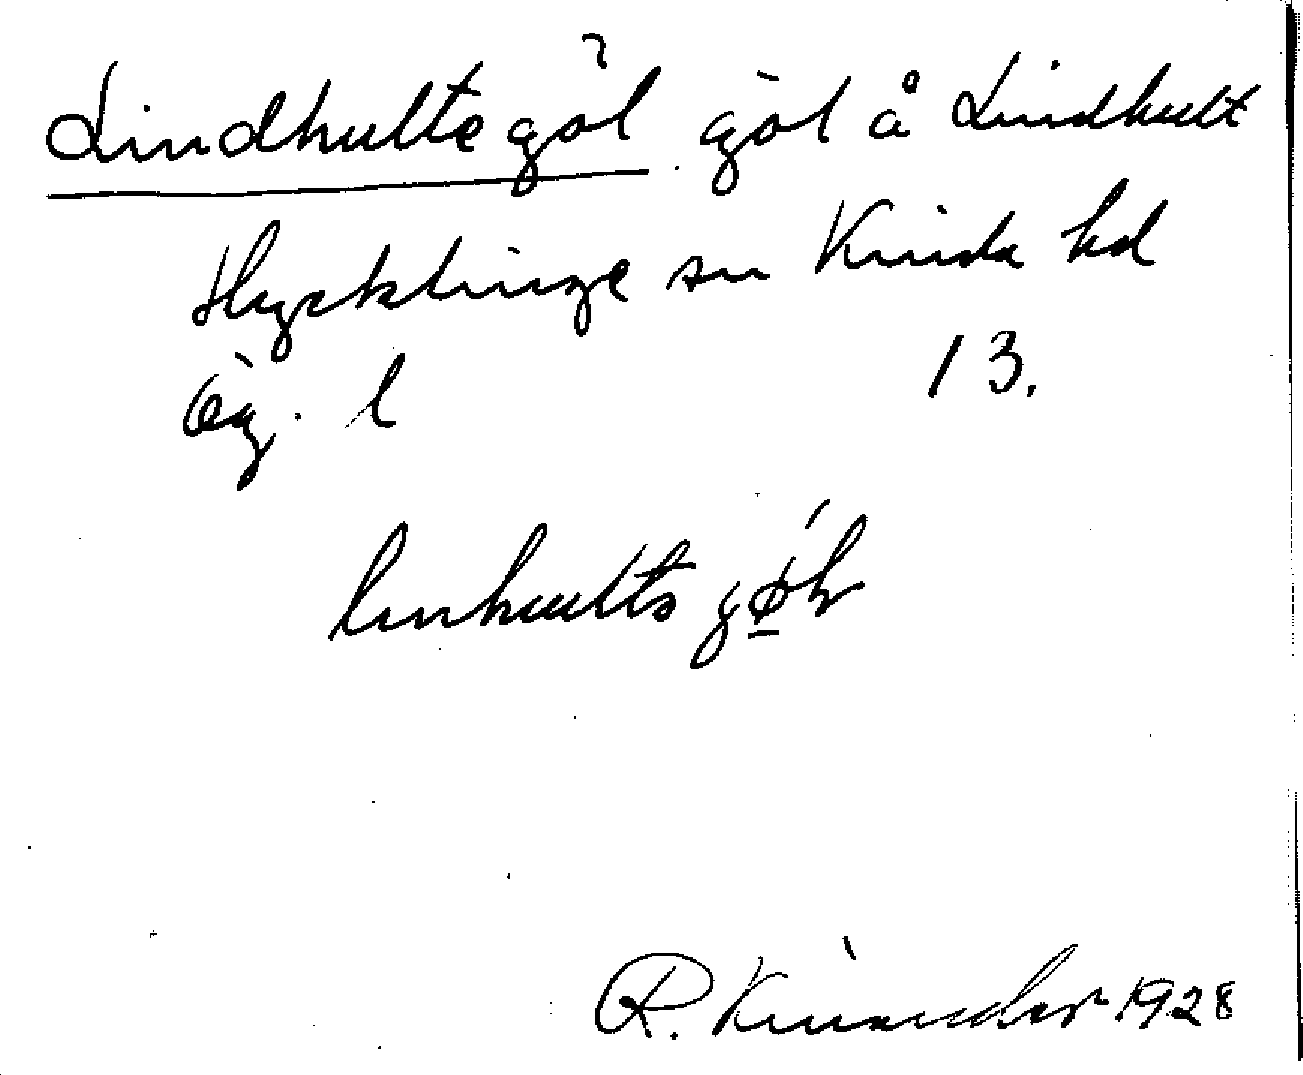 Lindhultegöl göl å Lindhult
Hycklinge sn Kinda hd
Ög. l 13.
linhults gǿ̱l
R. Kinander 1928